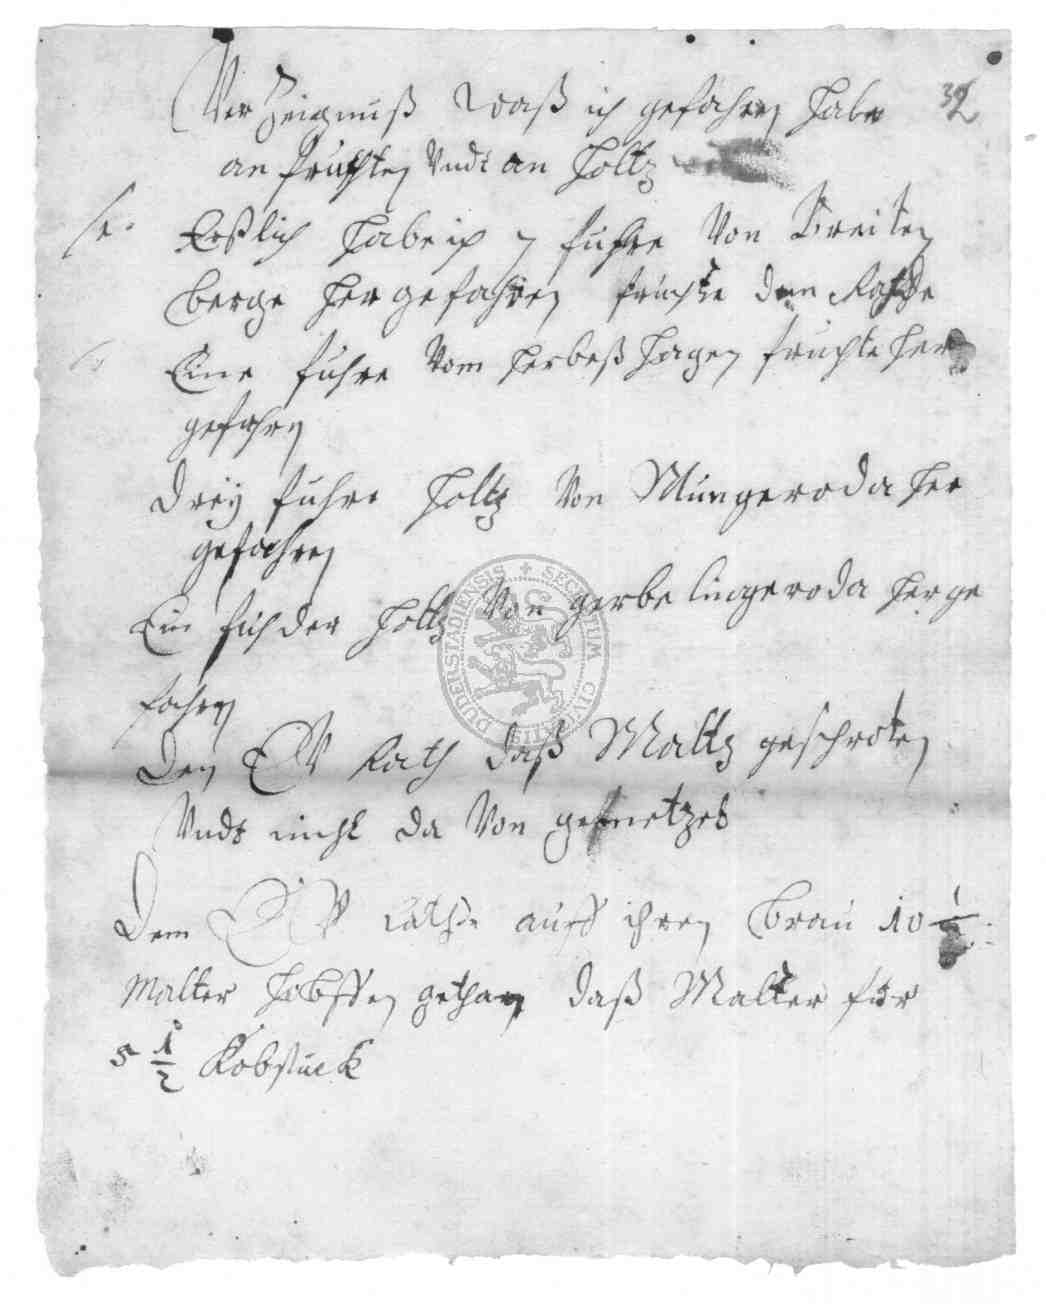 Ver Zeignuß Waß ich gefahren habe
39
an früchten Vndt an holtz
Erßlich habe ich 7 fuhre Von Breiten
berge her gefahren früchte dem Rahte
Eine fuhre Vom herbeß hagen fruchte her
gefahren
Dreÿ fuhre holtz Von Mungeroda her
gefahren
Ein fuhder holtz Von gerbelingeroda herge
fahren
Den Rath daß Maltz geschroten
Vndt nicht da Von gemetzet
Dem Rathe auff ihren Brau 10 1/2
Malter hobffen gethan daß Malter für
5 1/2 Kobstuck
SECRETUM CIVITATIS DUDERSTADIENSIS